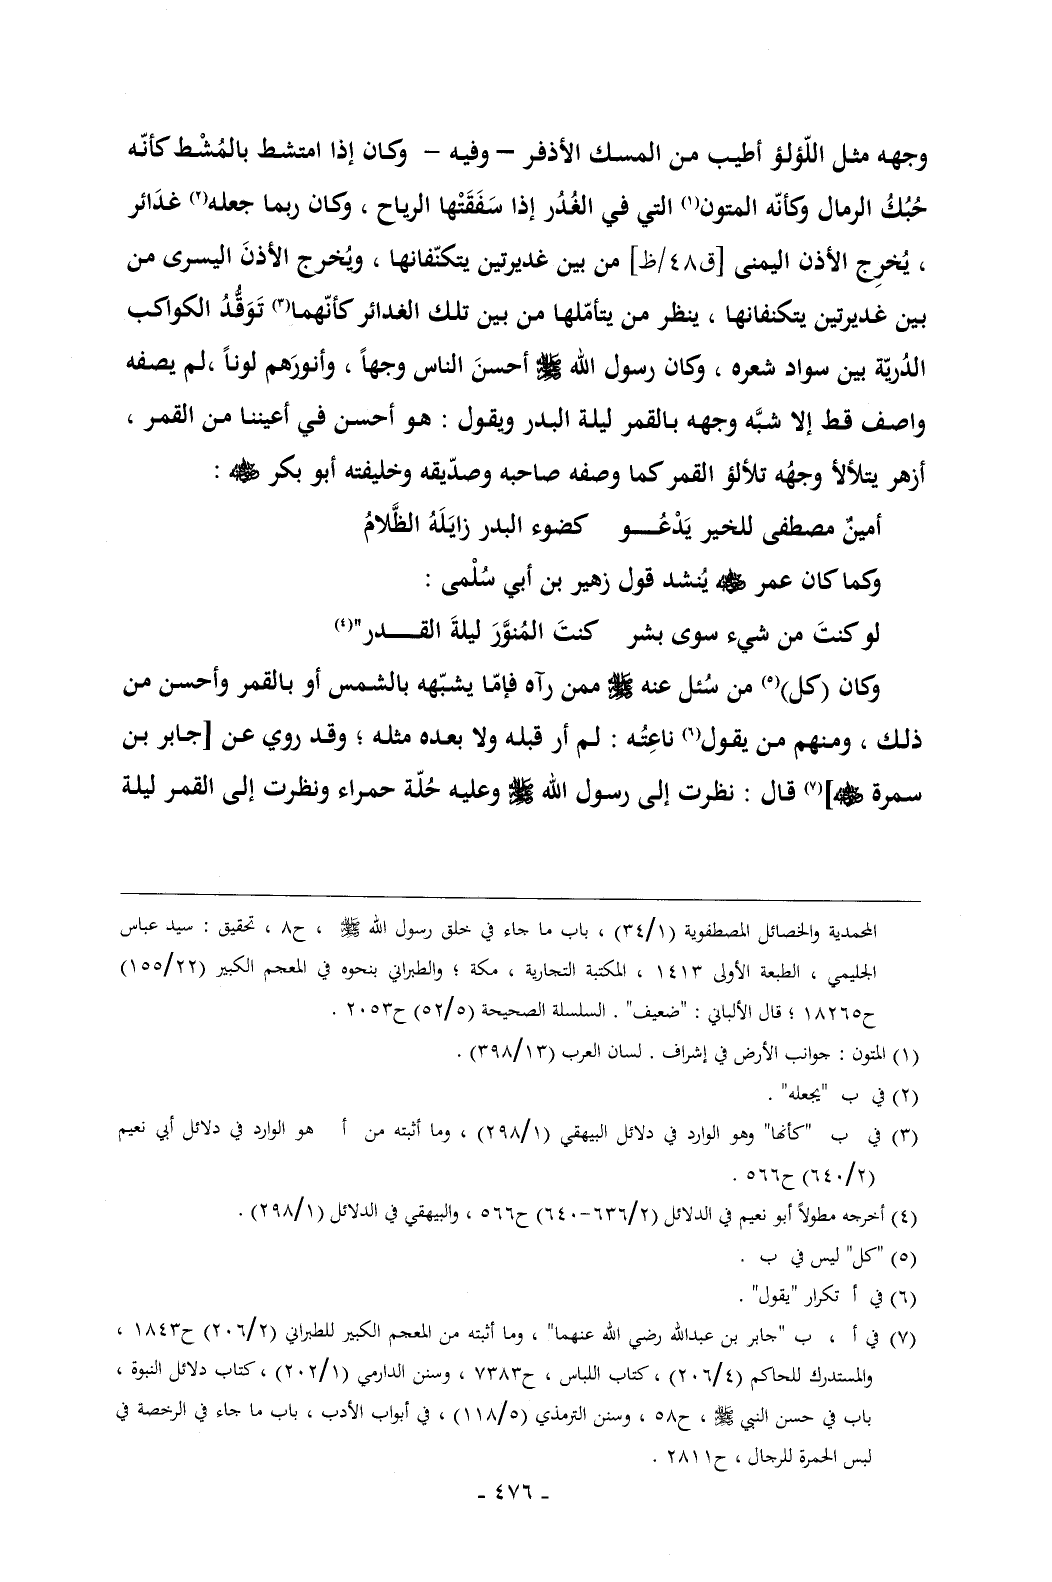 وجهه مثل اللّؤلؤ أطيب من المسك الأذفر – وفيه – وكان إذا امتشط بالمُشْط كأنّه
حُبُكُ الرمال وكأنّه المتون(١) التي في الغُدُر إذا سَفَقَتْها الرياح ، وكان ربما جعله(٢) غدَائر
، يُخرِج الأذن اليمنى [ق٤٨/ظ] من بين غديرتين يتكنّفانها ، ويُخرج الأذنَ اليسرى من
بين غديرتين يتكنفانها ، ينظر من يتأمّلها من بين تلك الغدائر كأنّهما(٣) تَوَقُّدُ الكواكب
الدُريّة بين سواد شعره ، وكان رسول الله ﷺ أحسنَ الناس وجهاً ، وأنورَهم لوناً ،لم يصفه
واصف قط إلا شبَّه وجهه بالقمر ليلة البدر ويقول : هو أحسن في أعيننا من القمر ،
أزهر يتلألأ وجهُه تلألؤ القمر كما وصفه صاحبه وصدّيقه وخليفته أبو بكر ﵁ :
أمينٌ مصطفى للخير يَدْعُـــو كضوء البدر زايَلَهُ الظَّلامُ
وكما كان عمر ﵁ يُنشد قول زهير بن أبي سُلْمى :
لو كنتَ من شيء سوى بشر كنتَ المُنوَّرَ ليلةَ القـــدر"(٤)
وكان (كل)(٥) من سُئل عنه ﷺ ممن رآه فإمّا يشبّهه بالشمس أو بالقمر وأحسن من
ذلك ، ومنهم من يقول(٦) ناعِتُه : لم أر قبله ولا بعده مثله ؛ وقد روي عن [جابر بن
سمرة ﵁](٧) قال : نظرت إلى رسول الله ﷺ وعليه حُلّة حمراء ونظرت إلى القمر ليلة
المحمدية والخصائل المصطفوية (٣٤/١) ، باب ما جاء في خلق رسول الله ﷺ ، ح٨ ، تحقيق : سيد عباس
الجليمي ، الطبعة الأولى ١٤١٣ ، المكتبة التجارية ، مكة ؛ والطبراني بنحوه في المعجم الكبير (١٥٥/٢٢)
ح١٨٢٦٥ ؛ قال الألباني : "ضعيف" . السلسلة الصحيحة (٥٢/٥) ح٢٠٥٣ .
(١) المتون : جوانب الأرض في إشراف . لسان العرب (٣٩٨/١٣) .
(٢) في ب "يجعله" .
(٣) في ب "كأنها" وهو الوارد في دلائل البيهقي (٢٩٨/١) ، وما أثبته من أ هو الوارد في دلائل أبي نعيم
(٦٤٠/٢) ح٥٦٦ .
(٤) أخرجه مطولاً أبو نعيم في الدلائل (٦٣٦/٢-٦٤٠) ح٥٦٦ ، والبيهقي في الدلائل (٢٩٨/١) .
(٥) "كل" ليس في ب .
(٦) في أ تكرار "يقول" .
(٧) في أ ، ب "جابر بن عبدالله رضي الله عنهما" ، وما أثبته من المعجم الكبير للطبراني (٢٠٦/٢) ح١٨٤٣ ،
والمستدرك للحاكم (٢٠٦/٤) ، كتاب اللباس ، ح٧٣٨٣ ، وسنن الدارمي (٢٠٢/١) ، كتاب دلائل النبوة ،
باب في حسن النبي ﷺ ، ح٥٨ ، وسنن الترمذي (١١٨/٥) ، في أبواب الأدب ، باب ما جاء في الرخصة في
لبس الحمرة للرجال ، ح٢٨١١ .
- ٤٧٦ -